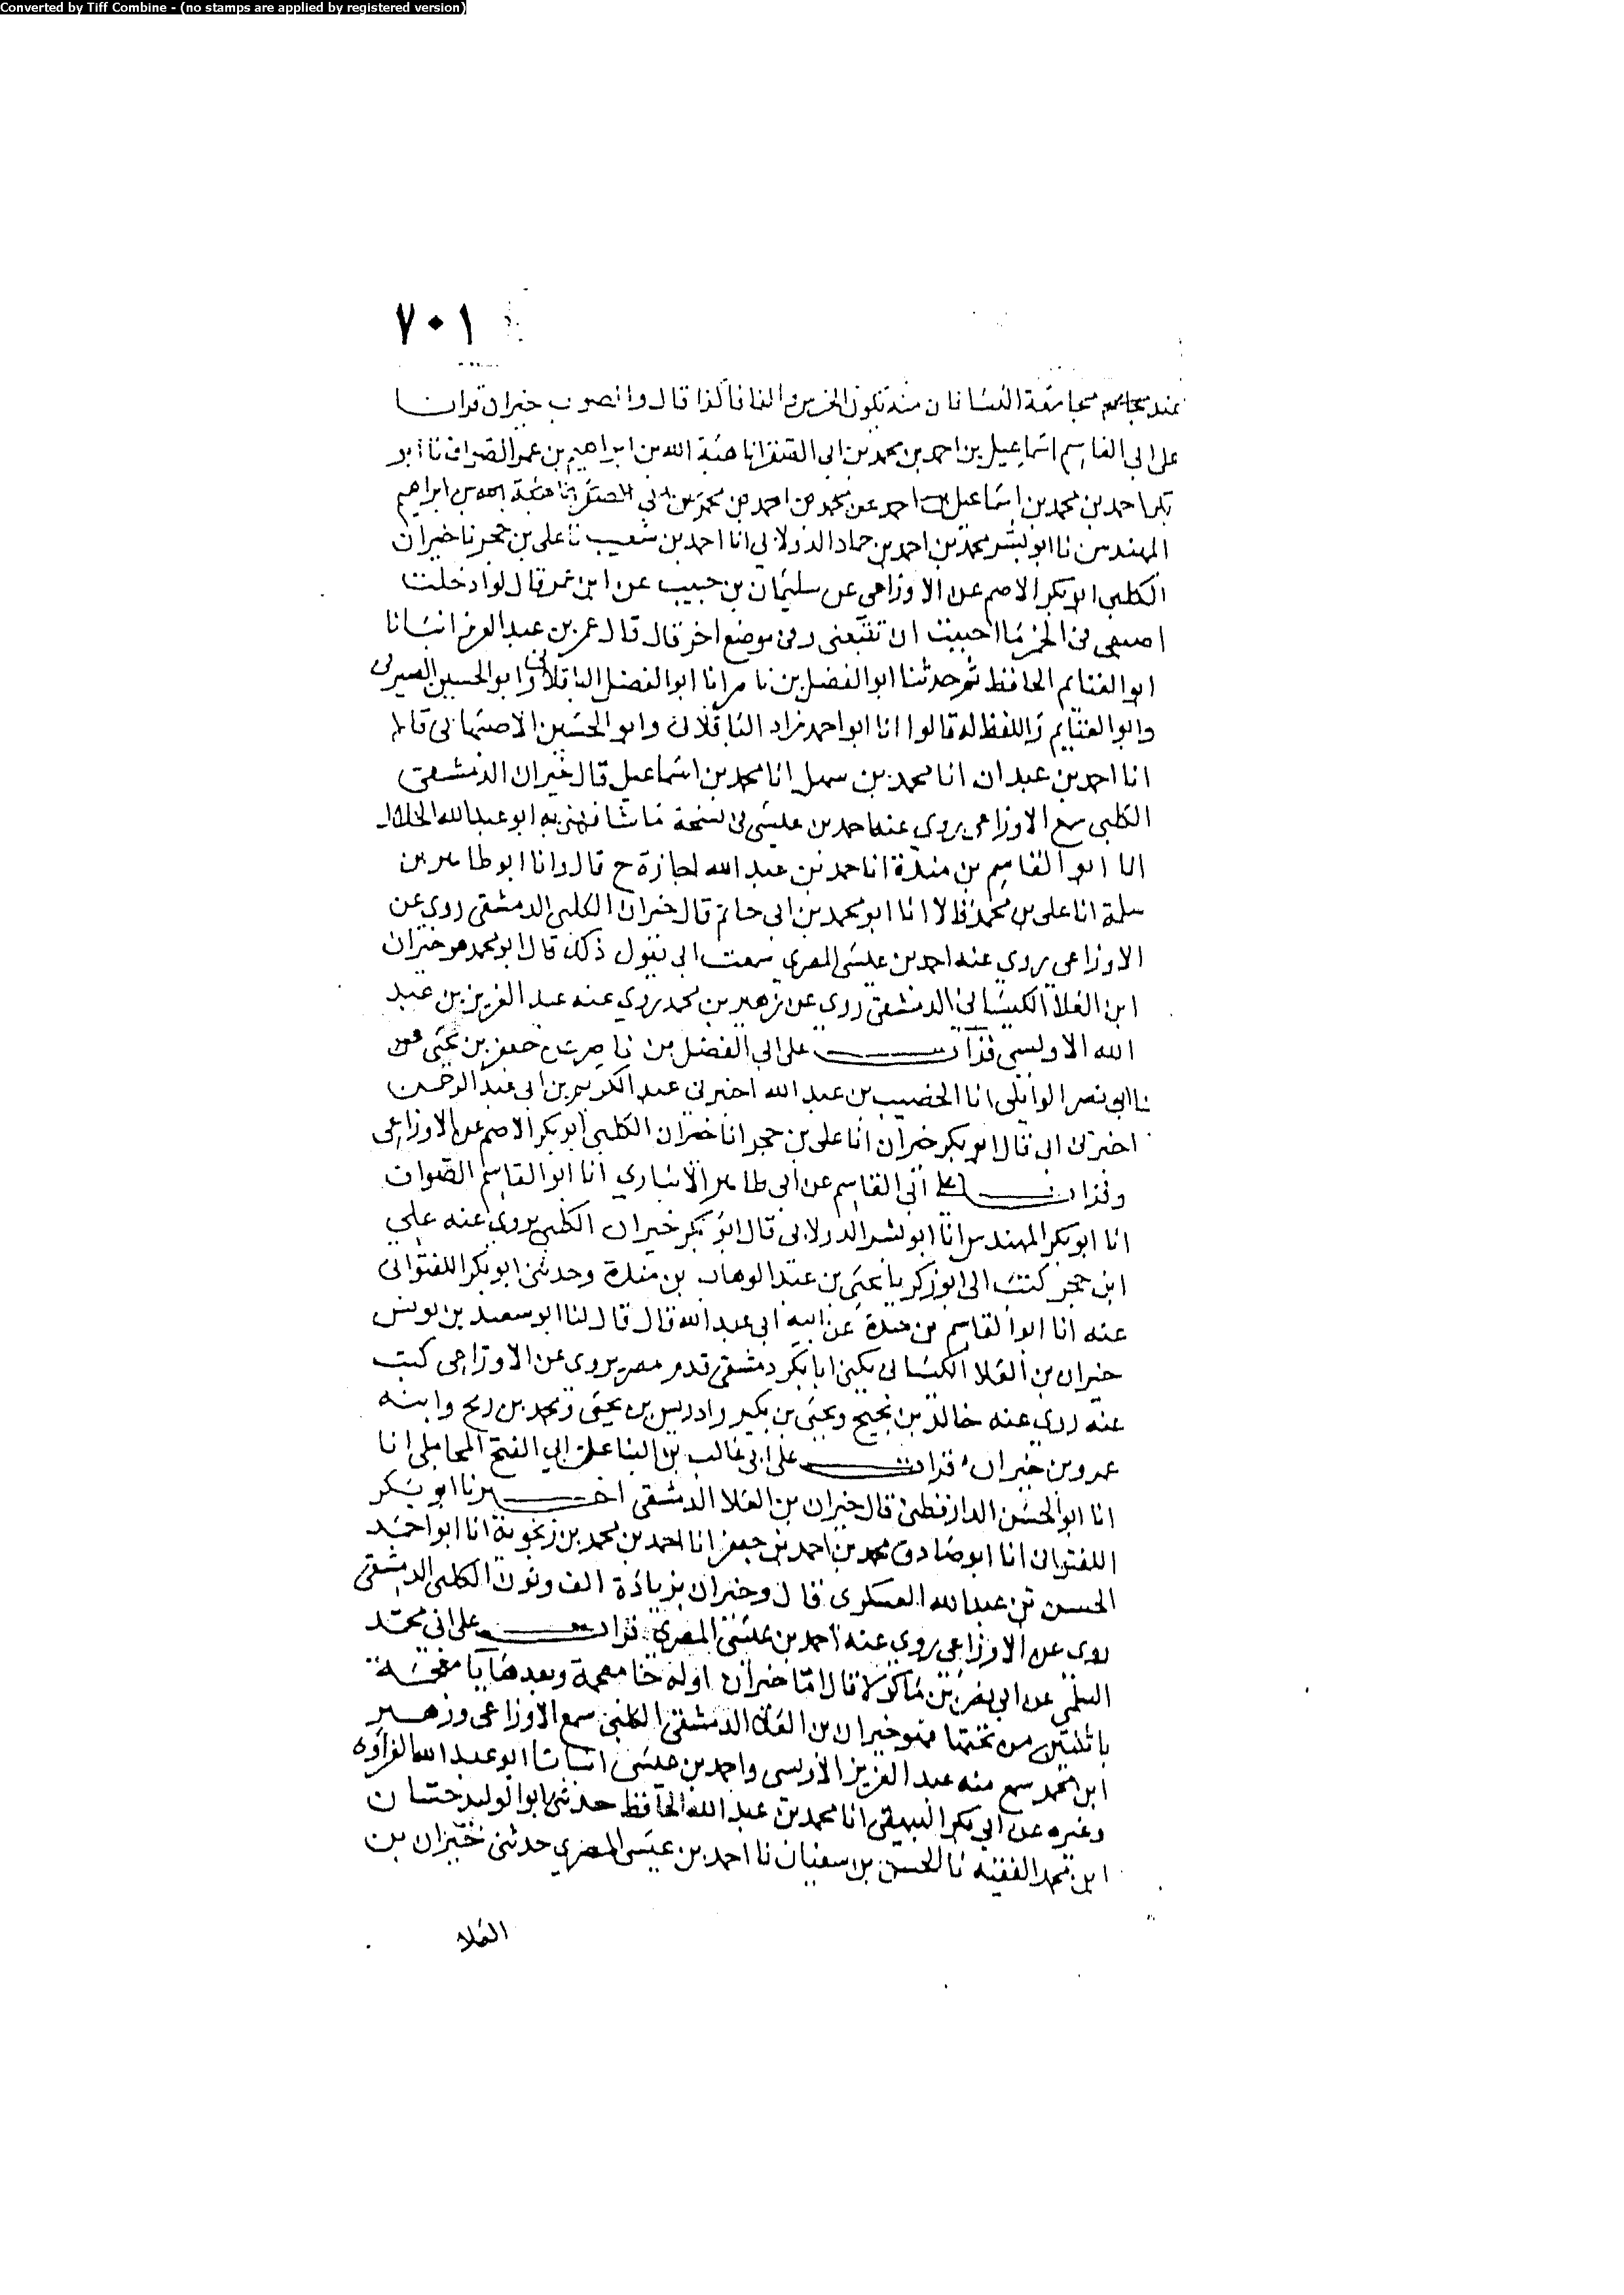 Converted by Tiff Combine - (no stamps are applied by registered version)
٧٠١
مجامعة النسا فان منه تكون الخرس والفافا كذا قال وانصوب خيران قرات
على ابى القاسم اسماعيل بن احمد بن محمد بن ابى الصقر انا هبة الله بن ابراهيم بن عمر الصواف نا ابو
بكر احمد بن محمد بن اسماعيل احمد عن محمد بن احمد بن محمد بن ابى الصقر انا هبة الله بن ابراهيم
المهندس نا ابو بشر محمد بن احمد بن حماد الدولابى انا احمد بن شعيب نا على بن حجر نا خيران
الكلبى ابو بكر الاصم عن الاوزاعى عن سليمان بن حبيب عن ابن عمر قال لو ادخلت
اصبعى فى الخمر ما احببت ان تتبعنى وفى موضع اخر قال قال عمر بن عبد العزيز انبانا
ابو الغنايم الحافظ ثم حدثنا ابو الفضل بن ناصر انا ابو الفضل الباقلانى وابو الحسين الصيرفى
وابو الغنايم واللفظ له قالوا انا ابو احمد زاد الباقلانى وابو الحسين الاصبهانى قالا
انا احمد بن عبدان انا محمد بن سهل انا محمد بن اسماعيل قال خيران الدمشقى
الكلبى سمع الاوزاعى يروى عنه احمد بن عيسى فى نسخة ما شافهنى به ابو عبد الله الخلال
انا ابو القاسم بن مندة انا حمد بن عبد الله اجازة ح قال وانا ابو طاهر بن
سلمة انا على بن محمد قالا انا ابو محمد بن ابى حاتم قال خيران الكلبى الدمشقى روى عن
الاوزاعى يروى عنه احمد بن عيسى المصرى سمعت ابى يقول ذلك قال ابو محمد هو خيران
ابن العلا الكيسانى الدمشقى روى عن زهير بن محمد روى عنه عبد العزيز بن عبد
الله الاويسى قرات على ابى الفضل بن ناصر عن جعفر بن يحيى
نا ابى نصر الوايلى انا الخصيب بن عبد الله اخبرنى عبد الكريم بن ابى عبد الرحمن
اخبرنى ابى قال ابو بكر خيران انا على بن حجر انا خيران الكلبى ابو بكر الاصم عن الاوزاعى
وقرات على ابى القاسم عن ابى طاهر الانبارى انا ابو القاسم الصواف
انا ابو بكر المهندس انا ابو بشر الدولابى قال ابو بكر خيران الكلبى يروى عنه على
ابن حجر كتب الى ابو زكريا يحيى بن عبد الوهاب بن مندة وحدثنى ابو بكر اللفتوانى
عنه انا ابو القاسم بن مندة عن ابيه ابى عبد الله قال قال لنا ابو سعيد بن يونس
خيران بن العلا الكيسانى يكنى ابا بكر دمشقى قدم مصر يروى عن الاوزاعى كتب
عنه روى عنه خالد بن نجيح ويحيى بن بكير وادريس بن يحيى ومحمد بن رمح وابنه
عمرو بن خيران قرات على ابى غالب بن البنا عن ابى الفتح المحاملى انا
انا ابو الحسن الدارقطنى قال خيران بن العلا الدمشقى اخبرنا ابو بكر
اللفتوانى انا ابو صادق محمد بن احمد بن جعفر انا احمد بن محمد بن زنجوية انا ابو احمد
الحسن بن عبد الله العسكرى قال وخيران بزيادة الف ونون الكلبى الدمشقى
روى عن الاوزاعى روى عنه احمد بن عيسى المصرى قرات على ابى محمد
السلمى عن ابى نصر بن ماكولا قال اما خيران اوله خا معجمة وبعدها يا معجمة
باثنتين من تحتها فهو خيران بن العلا الدمشقى الكلبى سمع الاوزاعى وزهير
ابن محمد سمع منه عبد العزيز الاويسى واحمد بن عيسى انبانا ابو عبد الله الفراوى
وغيره عن ابى بكر البيهقى انا محمد بن عبد الله الحافظ حدثنى ابو الوليد حسان
ابن محمد الفقيه نا الحسن بن سفيان نا احمد بن عيسى المصرى حدثنى خيران بن
العلا